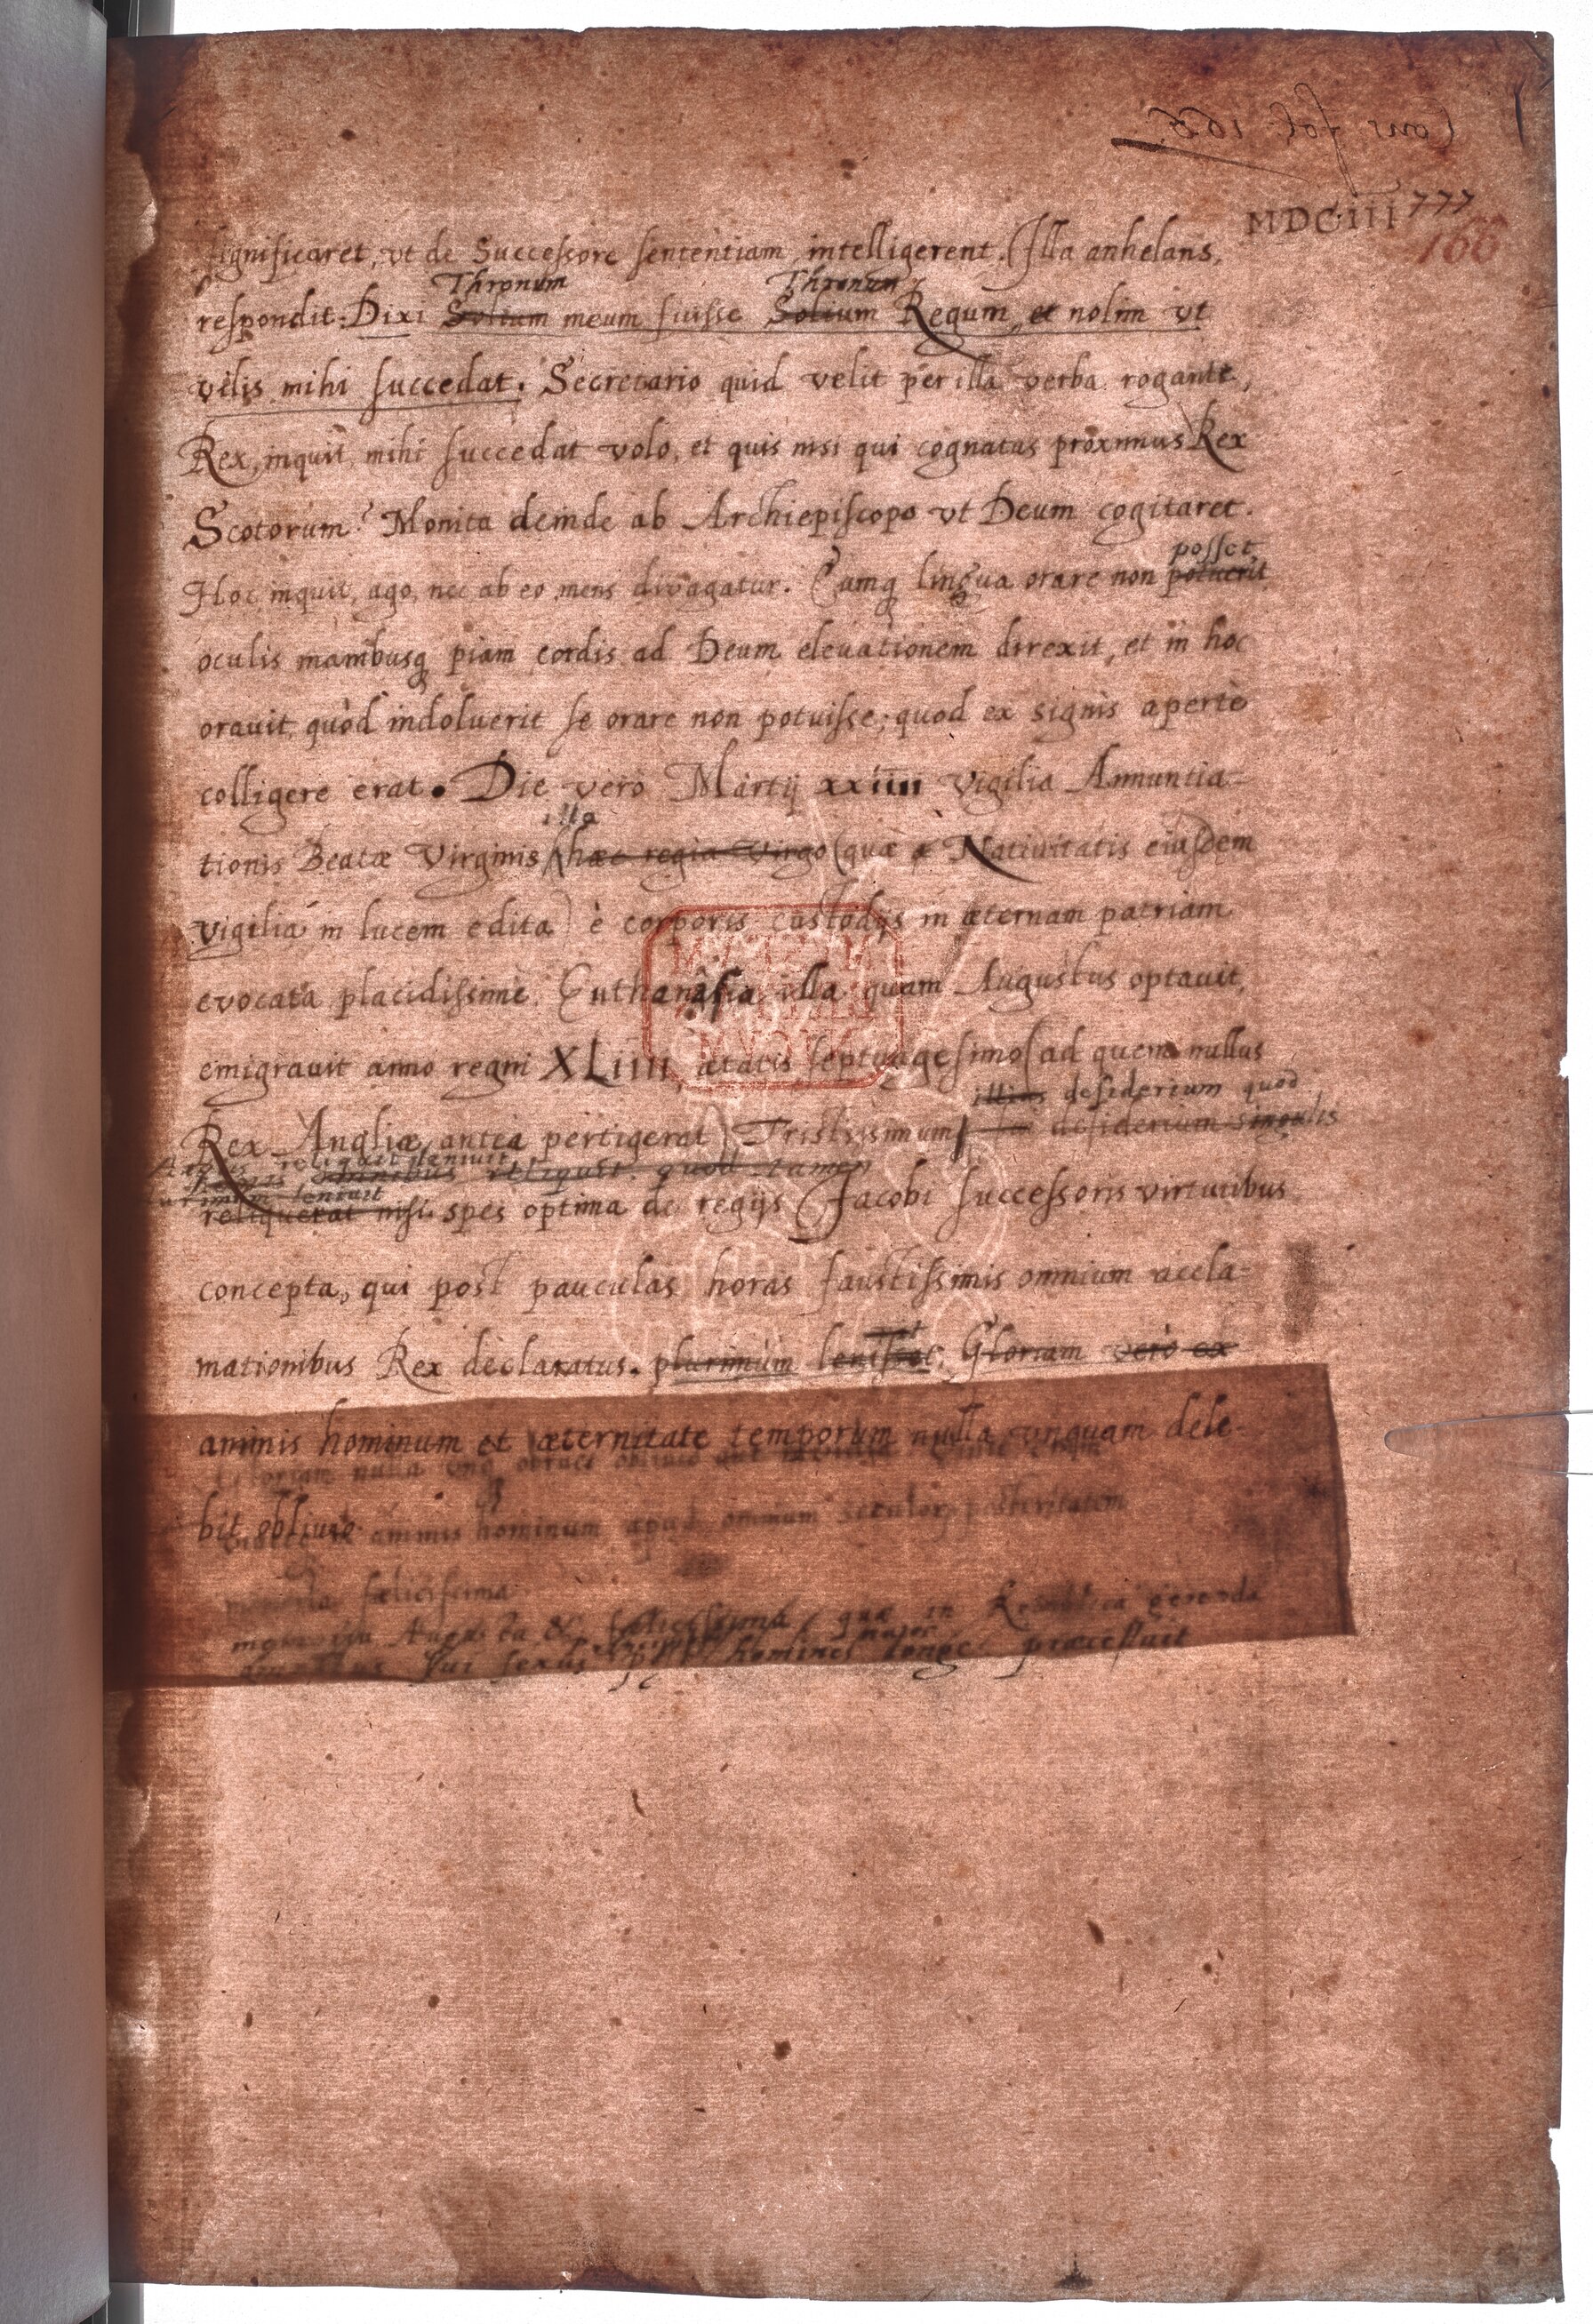 MDCiii 777
166
significaret, vt de Successore sententiam intelligerent. Illa anhelans,
Thronum Thronum
respondit: Dixi Solium meum fuisse Solium Regum, et nolim vt
vilis mihi succedat. Secretario quid velit per illa verba rogante,
Rex, inquit, mihi succedat volo, et quis nisi qui cognatus proximus Rex
Scotorum? Monita deinde ab Archiepiscopo vt Deum cogitaret.
posset,
Hoc inquit, ago, nec ab eo mens divagatur. Cumq lingua orare non potuerit
oculis manibusq piam cordis ad Deum eleuationem direxit, et in hoc
orauit, quòd indoluerit se orare non potuisse; quod ex signis apertè
colligere erat. Die vero Martij xxiiii vigilia Annuntia-
illa
tionis Beatæ Virginis hæc regia Virgo (quæ a Natiuitatis eiusdem
vigilia in lucem edita) è corporis custodijs in æternam patriam
evocata placidissimè Euthanasia illa quam Augustus optauit,
emigrauit anno regni XLiiii, ætatis septuagesimo (ad quem nullus
illius desiderium quod
Rex Angliæ antea pertigerat) Tristissimum desiderium singulis
Anglis reliquit leniuit
omnibus reliquit quod tamen
leniuit
reliquerat nisi spes optima de regijs Jacobi successoris virtutibus
concepta, qui post pauculas horas faustissimis omnium accla-
mationibus Rex declaratus. plurimùm Gloriam verò ex
animis hominum et æternitate temporum nulla vnquam dele-
Gloriam nulla vnq obruet obliuio
bit obliuio.
animis hominum apud omnium seculor posteritatem
fælicissima
memoria Augusta & fælicissima, quæ in
sui sexus homines longe præcelluit